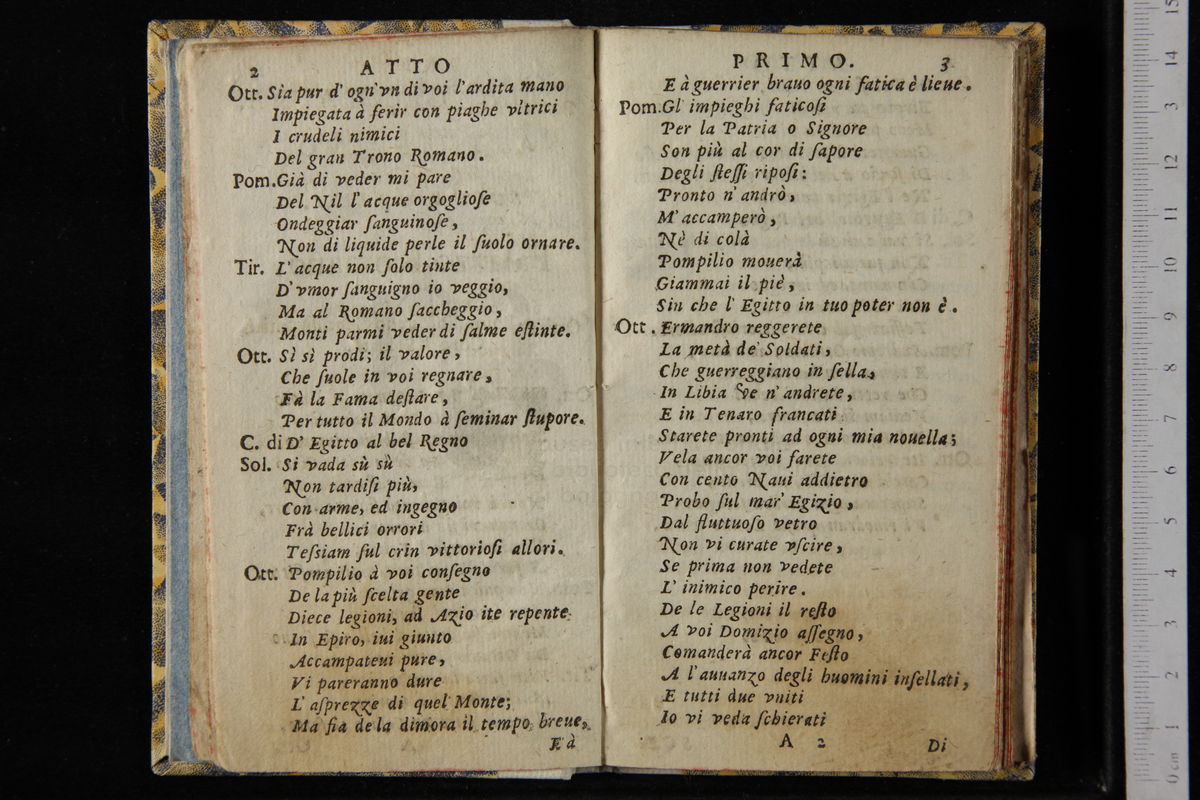 2 ATTO
Ott. Sia pur d' ogn'vn di voi l'ardita mano
Impiegata à ferir con piaghe vltrici
I crudeli nimici
Del gran Trono Romano.
Pom. Già di veder mi pare
Del Nil l'acque orgoglioſe
Ondeggiar ſanguinoſe,
Non di liquide perle il ſuolo ornare.
Tir. L'acque non ſolo tinte
D'vmor ſanguigno io veggio,
Ma al Romano ſaccheggio,
Monti parmi veder di ſalme eſtinte.
Ott. Sì sì prodi; il valore,
Che ſuole in voi regnare,
Fà la Fama deſtare,
Per tutto il Mondo à ſeminar ſtupore.
C. di D' Egitto al bel Regno
Sol. Si vada sù sù
Non tardiſi più,
Con arme, ed ingegno
Frà bellici orrori
Teſsiam ſul crin vittorioſi allori.
Ott. Pompilio à voi conſegno
De la più ſcelta gente
Diece legioni, ad Azio ite repente
In Epiro, iui giunto
Accampateui pure,
Vi pareranno dure
L' aſprezze di quel Monte;
Ma fia de la dimora il tempo breue,
E à
PRIMO. 3
E à guerrier brauo ogni fatica è lieue.
Pom. Gl' impieghi faticoſi
Per la Patria o Signore
Son più al cor di ſapore
Degli ſteſſi ripoſi:
Pronto n' andrò,
M' accamperò,
Nè di colà
Pompilio mouerà
Giammai il piè,
Sin che l' Egitto in tuo poter non è.
Ott. Ermandro reggerete
La metà de' Soldati,
Che guerreggiano in ſella,
In Libia Ve n' andrete,
E in Tenaro francati
Starete pronti ad ogni mia nouella;
Vela ancor voi farete
Con cento Naui addietro
Probo ſul mar' Egizio,
Dal fluttuoſo vetro
Non vi curate vſcire,
Se prima non vedete
L' inimico perire.
De le Legioni il reſto
A voi Domizio aſſegno,
Comanderà ancor Feſto
A l'auuanzo degli huomini inſellati,
E tutti due vniti
Io vi veda ſchierati
A 2 Di
15
14
13
12
11
10
9
8
7
6
5
4
3
2
1
0 cm